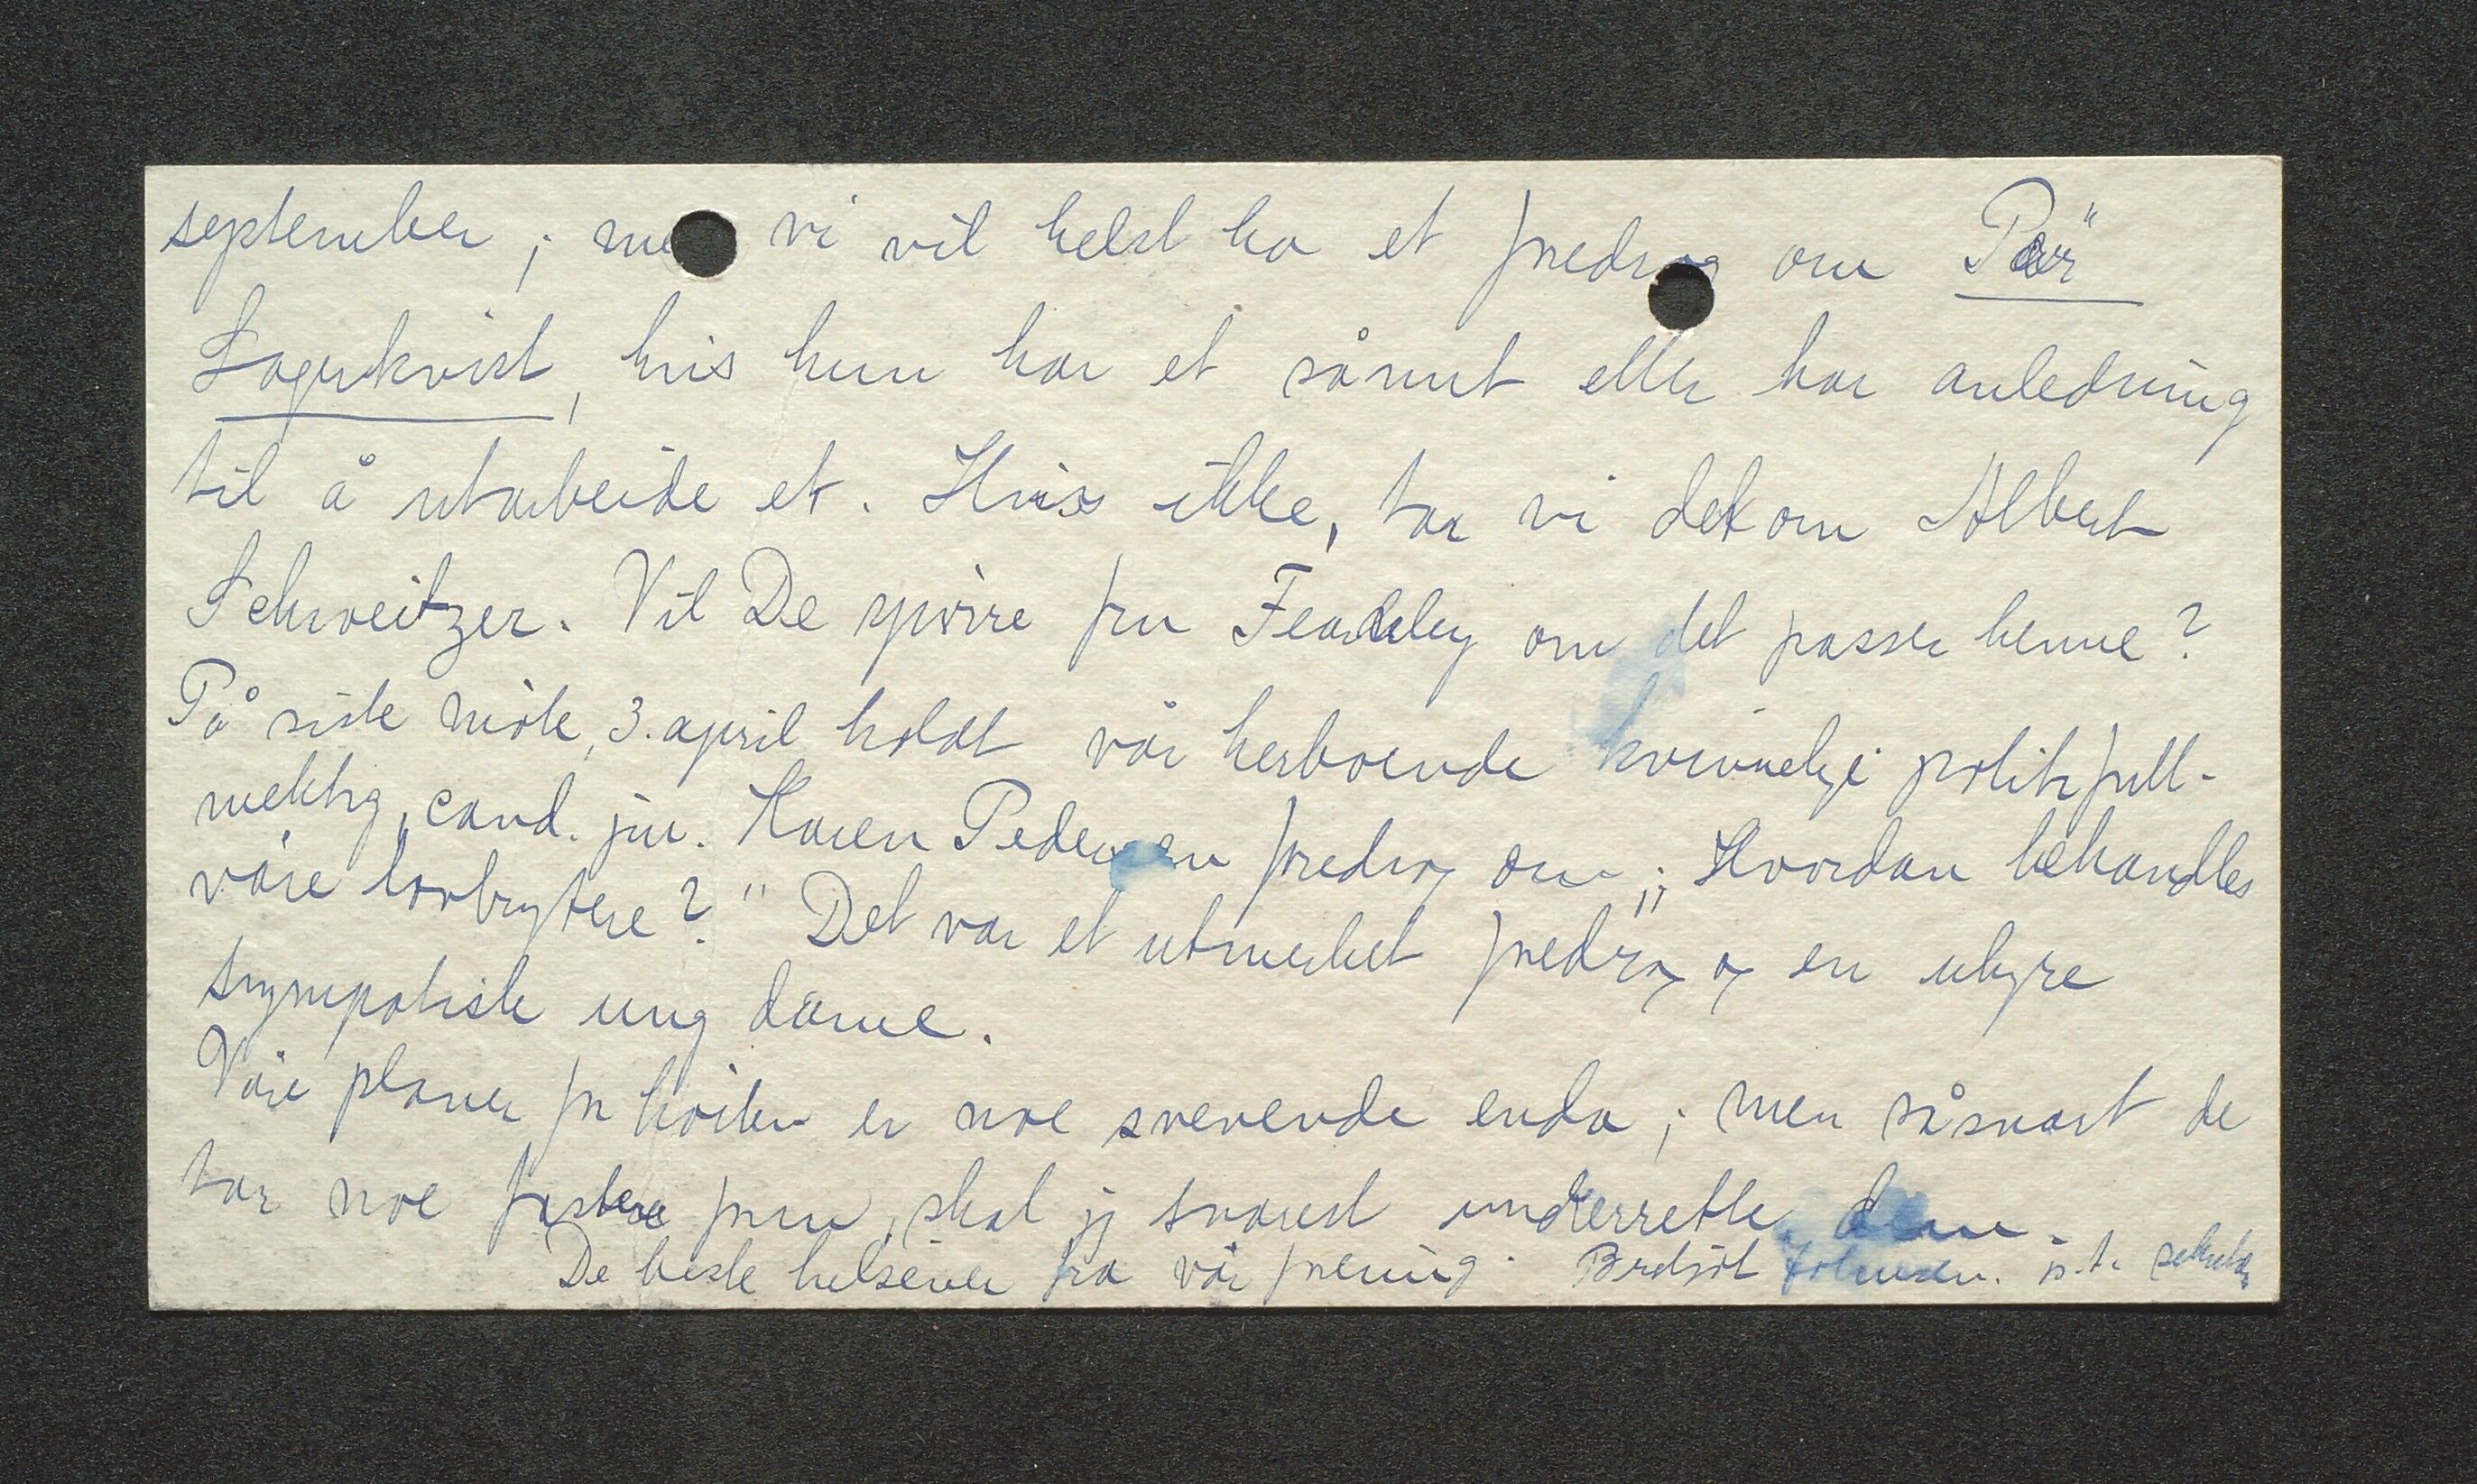 september; men vi vil helst ha et foredrag om Pär
Lagerkvist, hvis hun har et sånnt eller har anledning
til å utarbeide et. Hvis ikke, tar vi det om Albert
Schweitzer. Vil De spørre fru Fearnley om det passer henne?
På siste møte, 3. april holdt vår herboende kvinnelige politifull-
mektig, cand. jur. Karen Pedersen foredrag om: „Hvordan behandles
våre lovbrytere?" Det var et utmerket foredrag og en uhyre
sympatisk ung dame.
Våre planer for høsten er noe svevende enda; men såsnart de
tar noe fastere form, skal jeg snarest underrette dem.
De beste helsener fra vår forening. Bodjöt Johnsen. p.t. sekretær